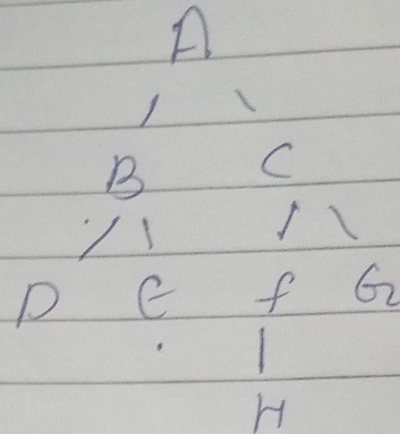 A
B C
D E f G
H